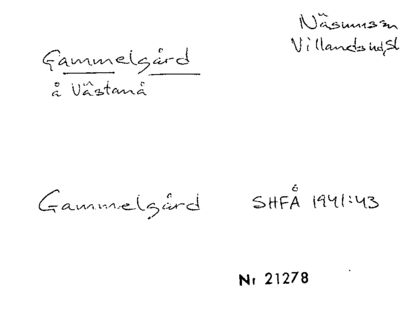 Näsums sn
Villands hd, Sk
Gammelgård
å Västanå
Gammelgård SHFÅ 1941:43
Nr 21278